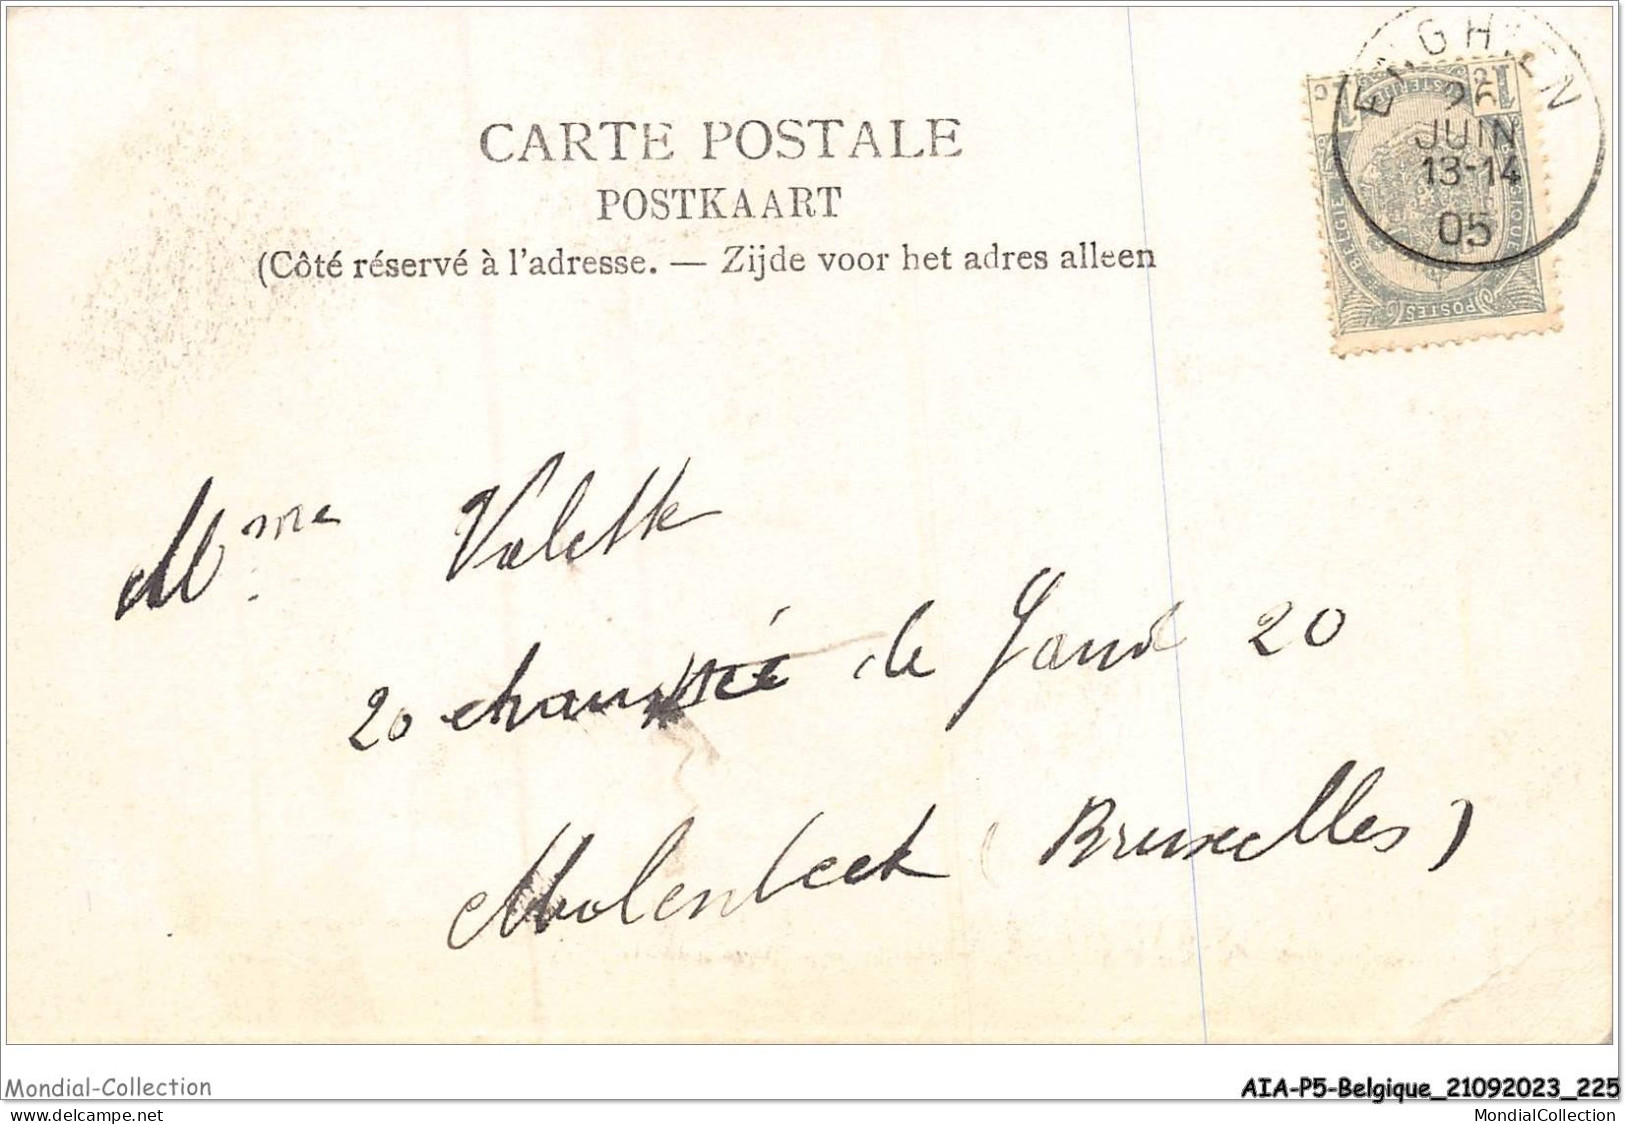 ENGHIEN
26
JUIN
13-14
05
CARTE POSTALE
POSTKAART
(Côté réservé à l'adresse. — Zijde voor het adres alleen
BELGIE
POSTES
Mme Valette
20 chaussée de Gand 20
Molenbeek (Bruxelles)
Mondial-Collection
AIA-P5-Belgique_21092023_225
www.delcampe.net
MondialCollection